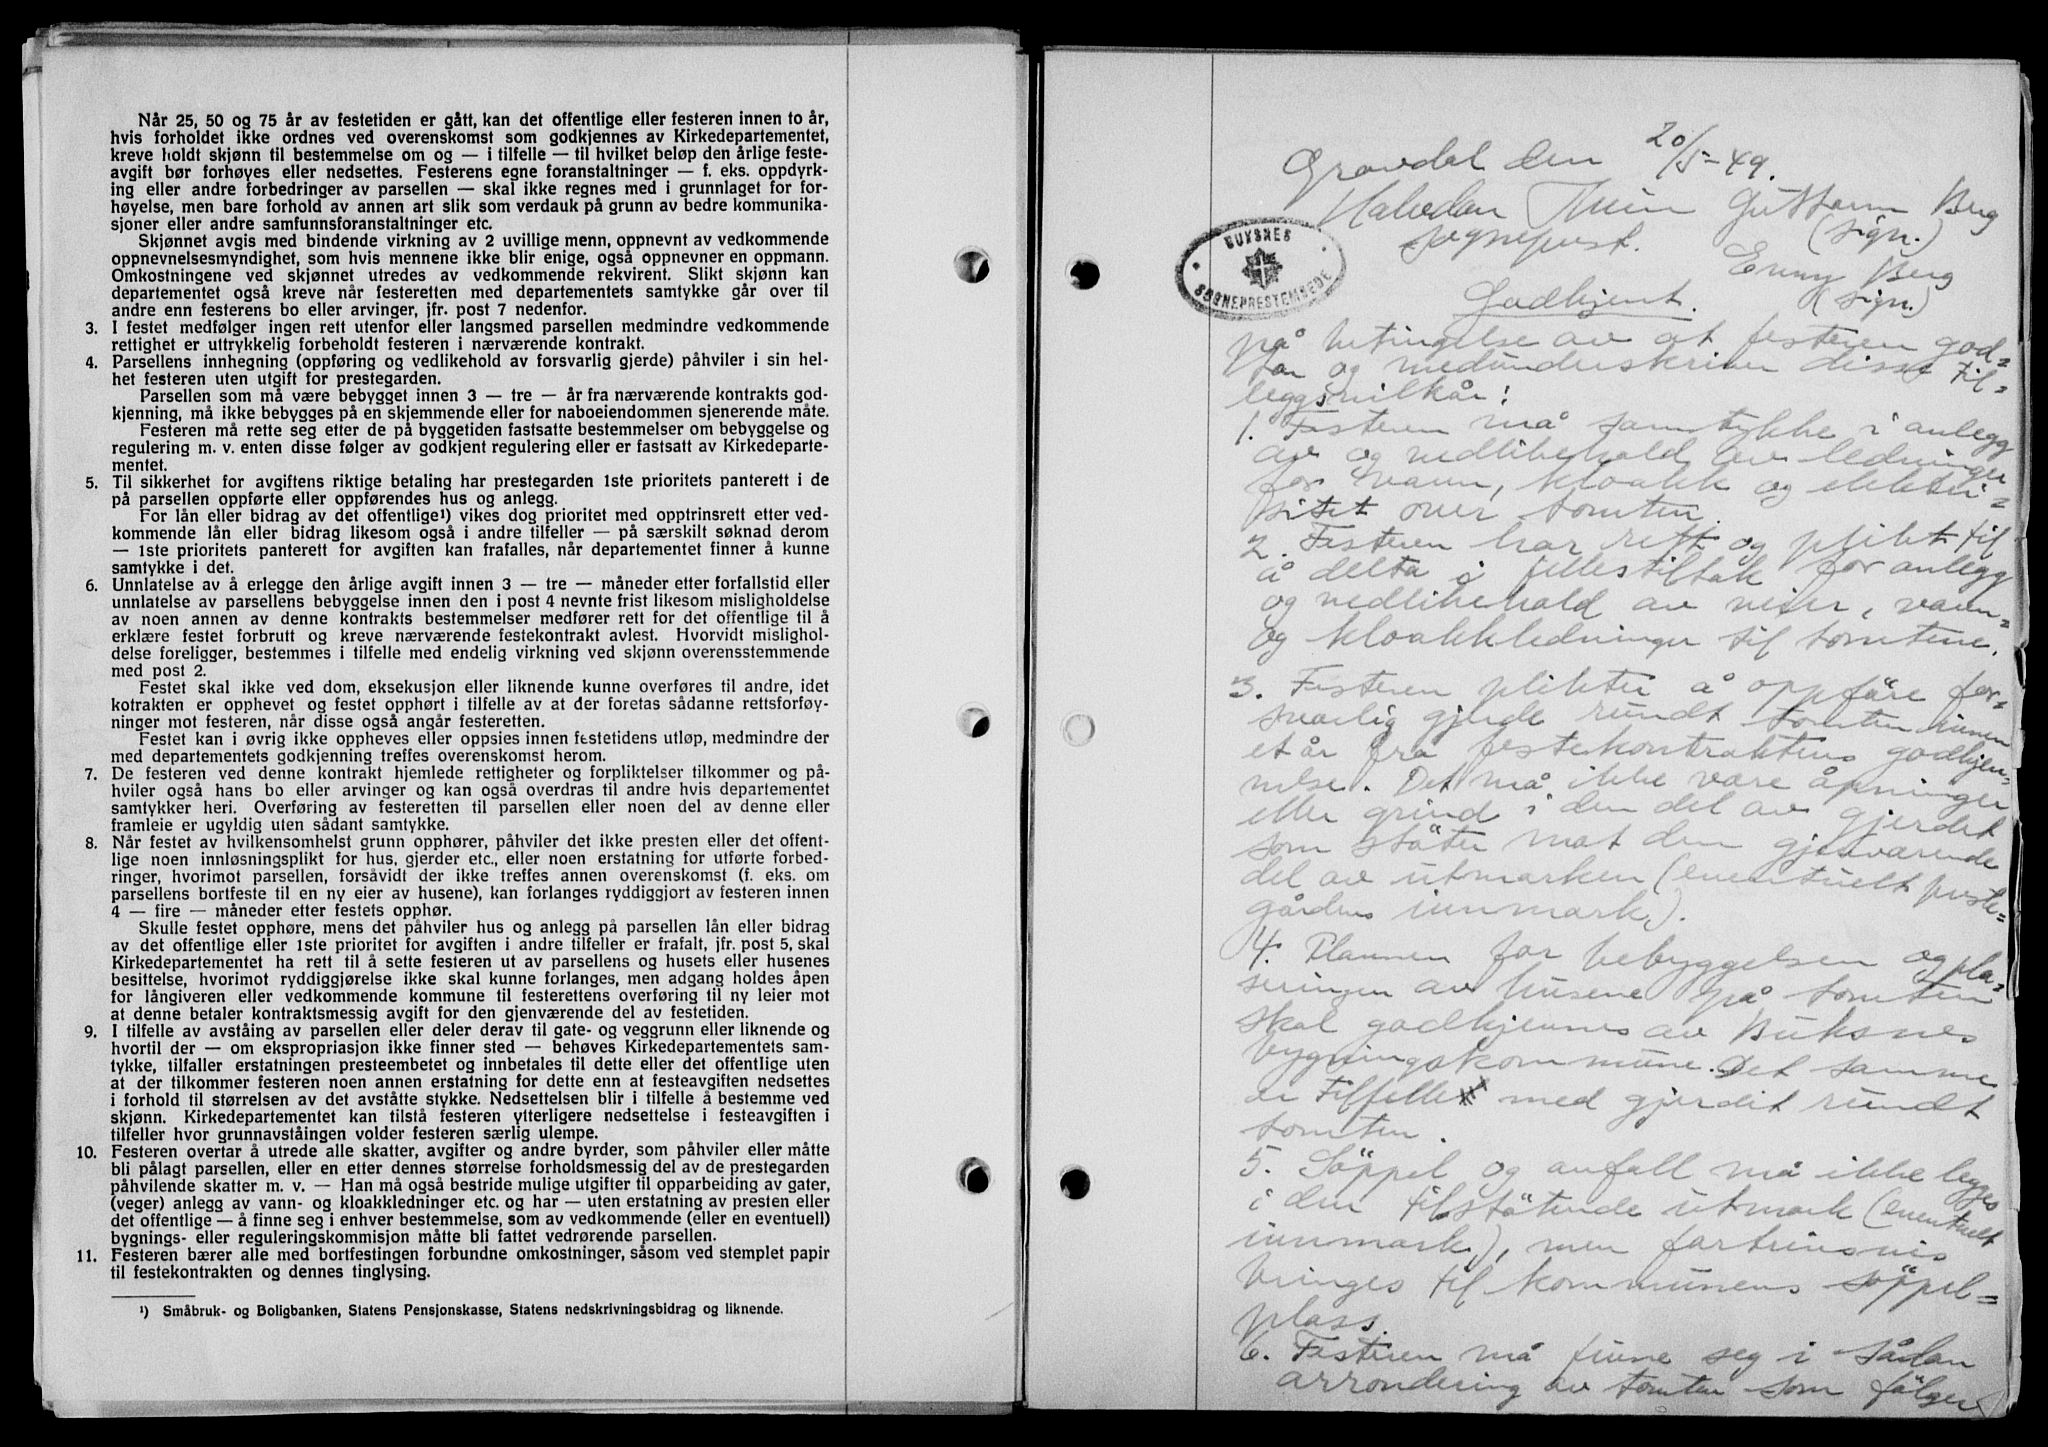 Når 25, 50 og 75 år av festetiden er gått, kan det offentlige eller festeren innen to år,
hvis forholdet ikke ordnes ved overenskomst som godkjennes av Kirkedepartementet,
kreve holdt skjønn til bestemmelse om og — i tilfelle — til hvilket beløp den årlige feste-
avgift bør forhøyes eller nedsettes. Festerens egne foranstaltninger — f. eks. oppdyrk-
ing eller andre forbedringer av parsellen — skal ikke regnes med i grunnlaget for for-
høyelse, men bare forhold av annen art slik som verdauk på grunn av bedre kommunika-
sjoner eller andre samfunnsforanstaltninger etc.
Skjønnet avgis med bindende virkning av 2 uvillige menn, oppnevnt av vedkommende
oppnevnelsesmyndighet, som hvis mennene ikke blir enige, også oppnevner en oppmann.
Omkostningene ved skjønnet utredes av vedkommende rekvirent. Slikt skjønn kan
departementet også kreve når festeretten med departementets samtykke går over til
andre enn festerens bo eller arvinger, jfr. post 7 nedenfor.
3. I festet medfølger ingen rett utenfor eller langsmed parsellen medmindre vedkommende
rettighet er uttrykkelig forbeholdt festeren i nærværende kontrakt.
4. Parsellens innhegning (oppføring og vedlikehold av forsvarlig gjerde) påhviler i sin hel-
het festeren uten utgift for prestegarden.
Parsellen som må være bebygget innen 3 — tre — år fra nærværende kontrakts god-
kjenning, må ikke bebygges på en skjemmende eller for naboeiendommen sjenerende måte.
Festeren må rette seg etter de på byggetiden fastsatte bestemmelser om bebyggelse og
regulering m. v. enten disse følger av godkjent regulering eller er fastsatt av Kirkedeparte-
mentet.
5. Til sikkerhet for avgiftens riktige betaling har prestegarden 1ste prioritets panterett i de
på parsellen oppførte eller oppførendes hus og anlegg.
For lån eller bidrag av det offentlige¹) vikes dog prioritet med opptrinsrett etter ved-
kommende lån eller bidrag likesom også i andre tilfeller — på særskilt søknad derom
— 1ste prioritets panterett for avgiften kan frafalles, når departementet finner å kunne
samtykke i det.
6. Unnlatelse av å erlegge den årlige avgift innen 3 — tre — måneder etter forfallstid eller
unnlatelse av parsellens bebyggelse innen den i post 4 nevnte frist likesom misligholdelse
av noen annen av denne kontrakts bestemmelser medfører rett for det offentlige til å
erklære festet forbrutt og kreve nærværende festekontrakt avlest. Hvorvidt mislighol-
delse foreligger, bestemmes i tilfelle med endelig virkning ved skjønn overensstemmende
med post 2.
Festet skal ikke ved dom, eksekusjon eller liknende kunne overføres til andre, idet
kotrakten er opphevet og festet opphørt i tilfelle av at der foretas sådanne rettsforføy-
ninger mot festeren, når disse også angår festeretten.
Festet kan i øvrig ikke oppheves eller oppsies innen festetidens utløp, medmindre der
med departementets godkjenning treffes overenskomst herom.
7. De festeren ved denne kontrakt hjemlede rettigheter og forpliktelser tilkommer og på-
hviler også hans bo eller arvinger og kan også overdras til andre hvis departementet
samtykker heri. Overføring av festeretten til parsellen eller noen del av denne eller
framleie er ugyldig uten sådant samtykke.
8. Når festet av hvilkensomhelst grunn opphører, påhviler det ikke presten eller det offent-
lige noen innløsningsplikt for hus, gjerder etc., eller noen erstatning for utførte forbed-
ringer, hvorimot parsellen, forsåvidt der ikke treffes annen overenskomst (f. eks. om
parsellens bortfeste til en ny eier av husene), kan forlanges ryddiggjort av festeren innen
4 — fire — måneder etter festets opphør.
Skulle festet opphøre, mens det påhviler hus og anlegg på parsellen lån eller bidrag
av det offentlige eller 1ste prioritet for avgiften i andre tilfeller er frafalt, jfr. post 5, skal
Kirkedepartementet ha rett til å sette festeren ut av parsellens og husets eller husenes
besittelse, hvorimot ryddiggjørelse ikke skal kunne forlanges, men adgang holdes åpen
for långiveren eller vedkommende kommune til festerettens overføring til ny leier mot
at denne betaler kontraktsmessig avgift for den gjenværende del av festetiden.
9. I tilfelle av avståing av parsellen eller deler derav til gate- og veggrunn eller liknende og
hvortil der — om ekspropriasjon ikke finner sted — behøves Kirkedepartementets sam-
tykke, tilfaller erstatningen presteembetet og innbetales til dette eller det offentlige uten
at der tilkommer festeren noen annen erstatning for dette enn at festeavgiften nedsettes
i forhold til størrelsen av det avståtte stykke. Nedsettelsen blir i tilfelle å bestemme ved
skjønn. Kirkedepartementet kan tilstå festeren ytterligere nedsettelse i festeavgiften i
tilfeller hvor grunnavståingen volder festeren særlig ulempe.
10. Festeren overtar å utrede alle skatter, avgifter og andre byrder, som påhviler eller måtte
bli pålagt parsellen, eller en etter dennes størrelse forholdsmessig del av de prestegarden
påhvilende skatter m. v. — Han må også bestride mulige utgifter til opparbeiding av gater,
(veger) anlegg av vann- og kloakkledninger etc. og har — uten erstatning av presten eller
det offentlige — å finne seg i enhver bestemmelse, som av vedkommende (eller en eventuell)
bygnings- eller reguleringskommisjon måtte bli fattet vedrørende parsellen.
11. Festeren bærer alle med bortfestingen forbundne omkostninger, såsom ved stemplet papir
til festekontrakten og dennes tinglysing.
¹) Småbruk- og Boligbanken, Statens Pensjonskasse, Statens nedskrivningsbidrag og liknende.
Gravdal den 20/5-49.
Halvdan Guttorm Berg
sogneprest. (sign.)
BUKSNES
SOGNEPRESTEMBEDE
Enny Berg
(sign.)
Godkjent.
på betingelse av at festeren god=
tar og medunderskriver disse til=
leggsvilkår:
1. Festeren må samtykke i anlegg
av og vedlikehold av ledninger
for vann, kloakk og elektri=
sitet over tomten.
2. Festeren har rett og plikt til
å delta i fellestiltak for anlegg
og vedlikehold av veier, vann=
og kloakkledninger til tomtene.
3. Festeren plikter å oppføre for=
svarlig gjerde rundt tomten innen
et år fra festekontraktens godkjen=
nelse. Det må ikke være åpninger
eller grind i den del av gjerdet
som støter mot den gjenværende
del av utmarken (eventuelt preste=
gårdens innmark).
4. Planen for bebyggelsen og pla=
seringen av husene på tomten
skal godkjennes av Buksnes
bygningskommune. Det samme
er tilfelle med gjerdet rundt
tomten.
5. Søppel og avfall må ikke legges
i den tilstøtende utmark (eventuelt
innmark), men fortrinsvis
bringes til kommunens søppel=
plass.
6. Festeren må finne seg i sådan
arrondering av tomten som følger